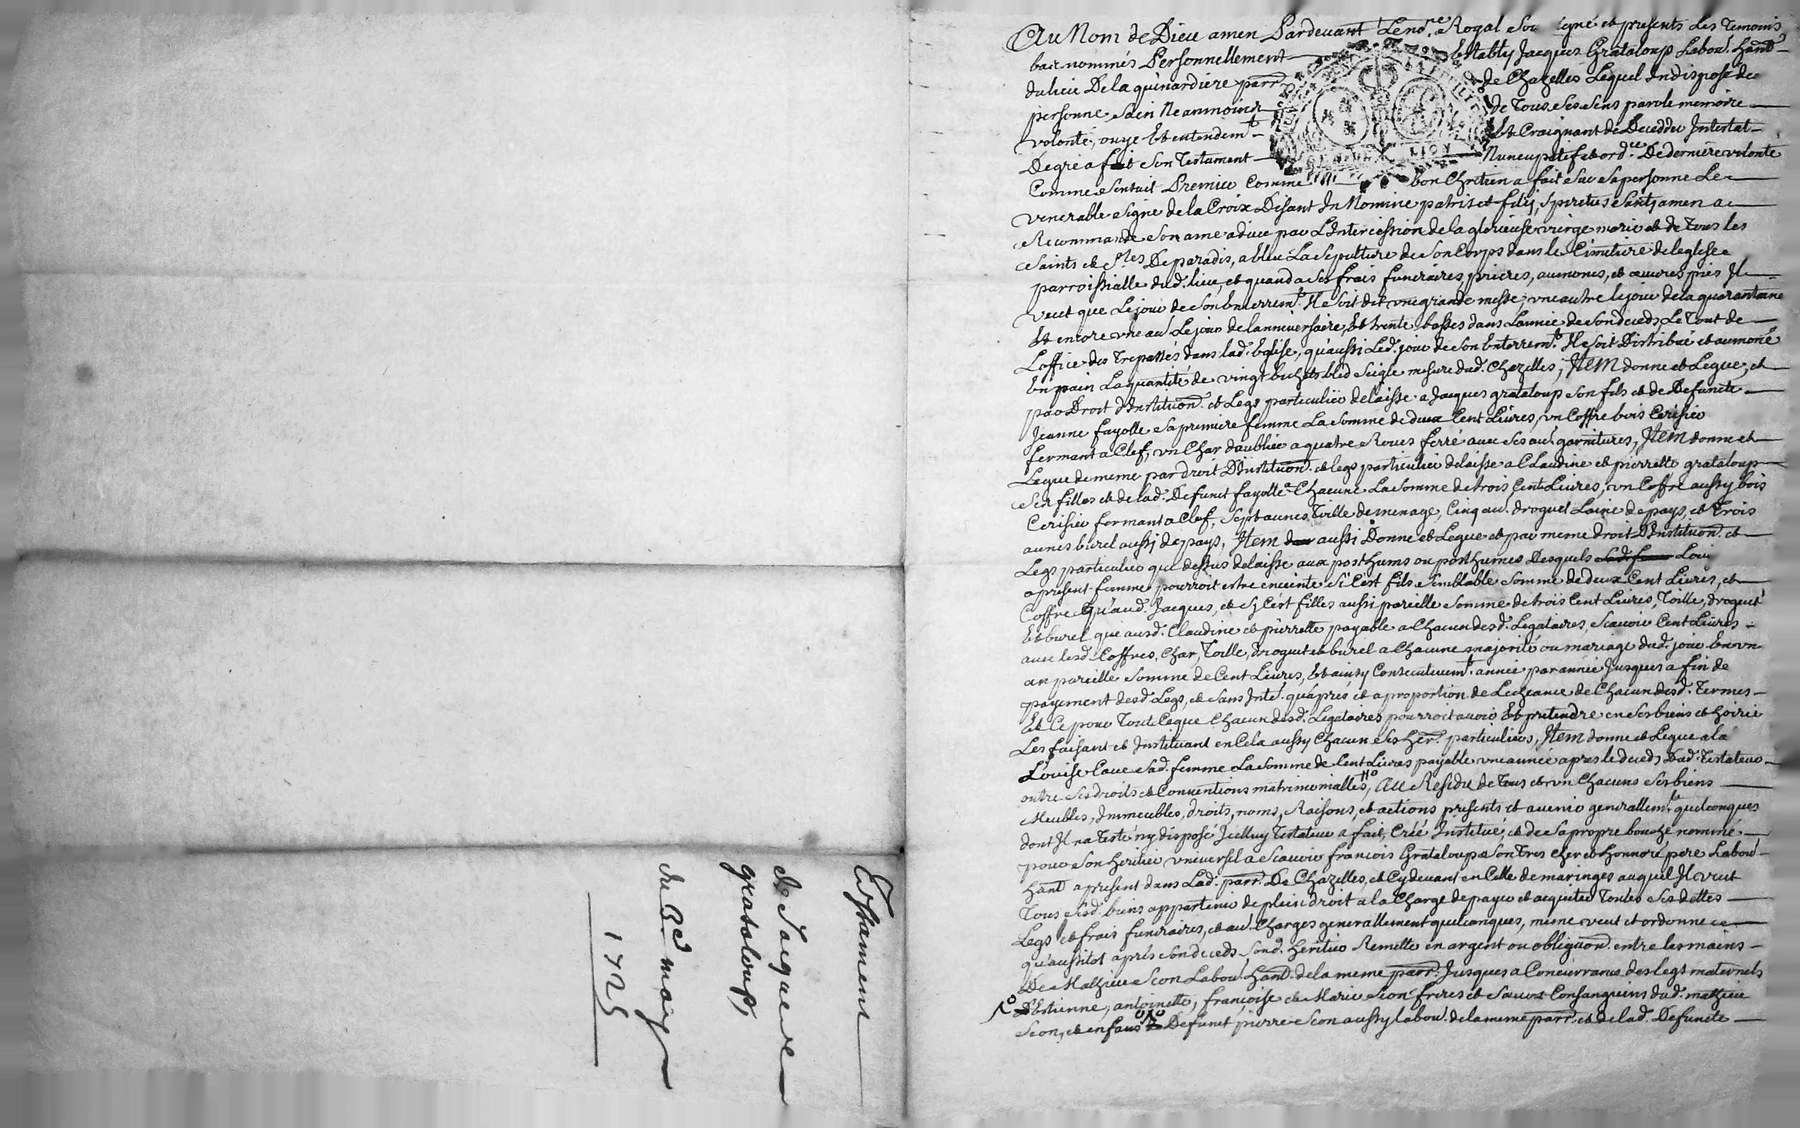 Testament
de Jacques
grataloup,
du may
1725
Au Nom de Dieu amen Pardevant Le no.re Royal sou igné et presents Les Temoins
bas nommés Personnellement Etably Jacques Grataloup Labour. habt.
du lieu De la quinardiere parr. de Chazelles Lequel Indisposé de
personne sain Neanmoins de Tous ses sens parole memoire
volonté, ouye Et entendemt. Et Craignant de Deceder Intestat
De gré a fait son Testament Nuncupatif et ord.re De derniere volonté
Comme sensuit Premier Comme bon Chretien a fait sur sa personne Le
venerable signe de la Croix Disant In Nomine patris et filij, spiritus Santj amen a
Recommandé son ame a dieu par L'Intercession de la glorieuse vierge marie et de Tous les
saints et s.tes De paradis, a bleu La sepulture de son Corps dans le Cimetiere de leglise
parroissialle dud. lieu, et quand a ses frais funeraires prieres, aumones, et œuvres pies Il
veut que Le jour de son Enterremt. Il e soit dit une grande messe, une autre le jour de la quarantaine
Et encore une au Le jour de lanniversaire, Et trente basses dans Lannée de son deceds Le Tout de
L'office des Trepassés dans lad. Eglise, qu'aussi Led. jour de son Enterremt. Il e soit Distribué et aumoné
En pain La quantité de vingt bichets bled seigle mesure dud. Chazelles, Item donne et Legue, et
par Droit d'Instituon. et Legs particulier delaisse a Jacques grataloup son fils et de Defuncte
Jeanne fayolle sa premiere femme La somme de deux Cent Livres, un Coffre bois Cerisier
fermant a Clef, un Char a quatre Roues ferré avec ses au. garnitures, Item donne et
Legue de meme par droit D'Instituon. et legs particulier delaisse a Claudine et pierrette grataloup
ses filles et de lad. Defunct fayolle Chacune La somme de trois Cent Livres, un Coffre aussy bois
Cerisier fermant a Clef, sept aunes Toille de menage, Cinq au. droguet Laine de pays, et Trois
aunes burel aussi de pays, Item aussi Donne et Legue et par meme droit D'Instituon. et
Legs particulier que dessus delaisse aux posthums ou posthumes Desquels
a present femme pourroit estre enceinte si C'est fils semblable somme de deux Cent Livres, et
Coffre Qu'aud. Jacques, et sy C'est filles aussi pareille somme de trois Cent Livres, Toille, droguet
Et burel que ausd. Claudine et pierrette payable a Chacun desd. Legataires, scavoir Cent Livres
avec lesd. Coffres, Char, Toille, droguet et burel a Chacune majorité ou mariage dud. jour En un
an pareille somme de Cent Livres, Et ainsy Consecutivemt. année par année Jusques a fin de
payement desd. Legs, et sans Inte. qu'après et a proportion de Lecheance de Chacun desd. Termes
Et Ce pour Tout Ce que Chacun desd. Legataires pourroit avoir Et pretendre en ses biens et hoirie
Les faisant et Instituant en Cela aussy Chacun ses her. particuliers, Item donne et Legue a la
Louise sad. femme La somme de Cent Livres payable une année apres le deceds Dud. Testateur
outre ses droits et Conventions matrimonialles, Au Residu de Tous et un Chacuns ses biens
Meubles, Immeubles, droits, noms, Raisons, et actions presents et avenir generallemt. quelconques
dont Il na Testé ny disposé Icelluy Testateur a fait, Créé Institué, et de sa propre bouche nommé
pour son heritier universel a scavoir françois Grataloup son tres cher et honnoré pere Labour.
habt. a present dans Lad. parr. De Chazelles, et Cydevant en Celle de maringes auquel Il veut
Tous sesd. biens appartenir de plein droit a la Charge de payer et acquiter Toutes ses dettes
Legs et frais funeraires, et au. Charges generallement quelconques, meme veut et ordonne
qu'aussitot après son deceds sond. heritier Remette en argent ou obligaon. entre les mains
De Mathieu scon Labour. habt. de la meme parr. Jusques a Concurrance des legs maternels
D'Estienne, antoinette, françoise et Marie scon freres et sœurs Consanguins dud. mathieu
scon, et enfans Defunct pierre scon aussy labour. de la meme parr. et de lad. Defuncte